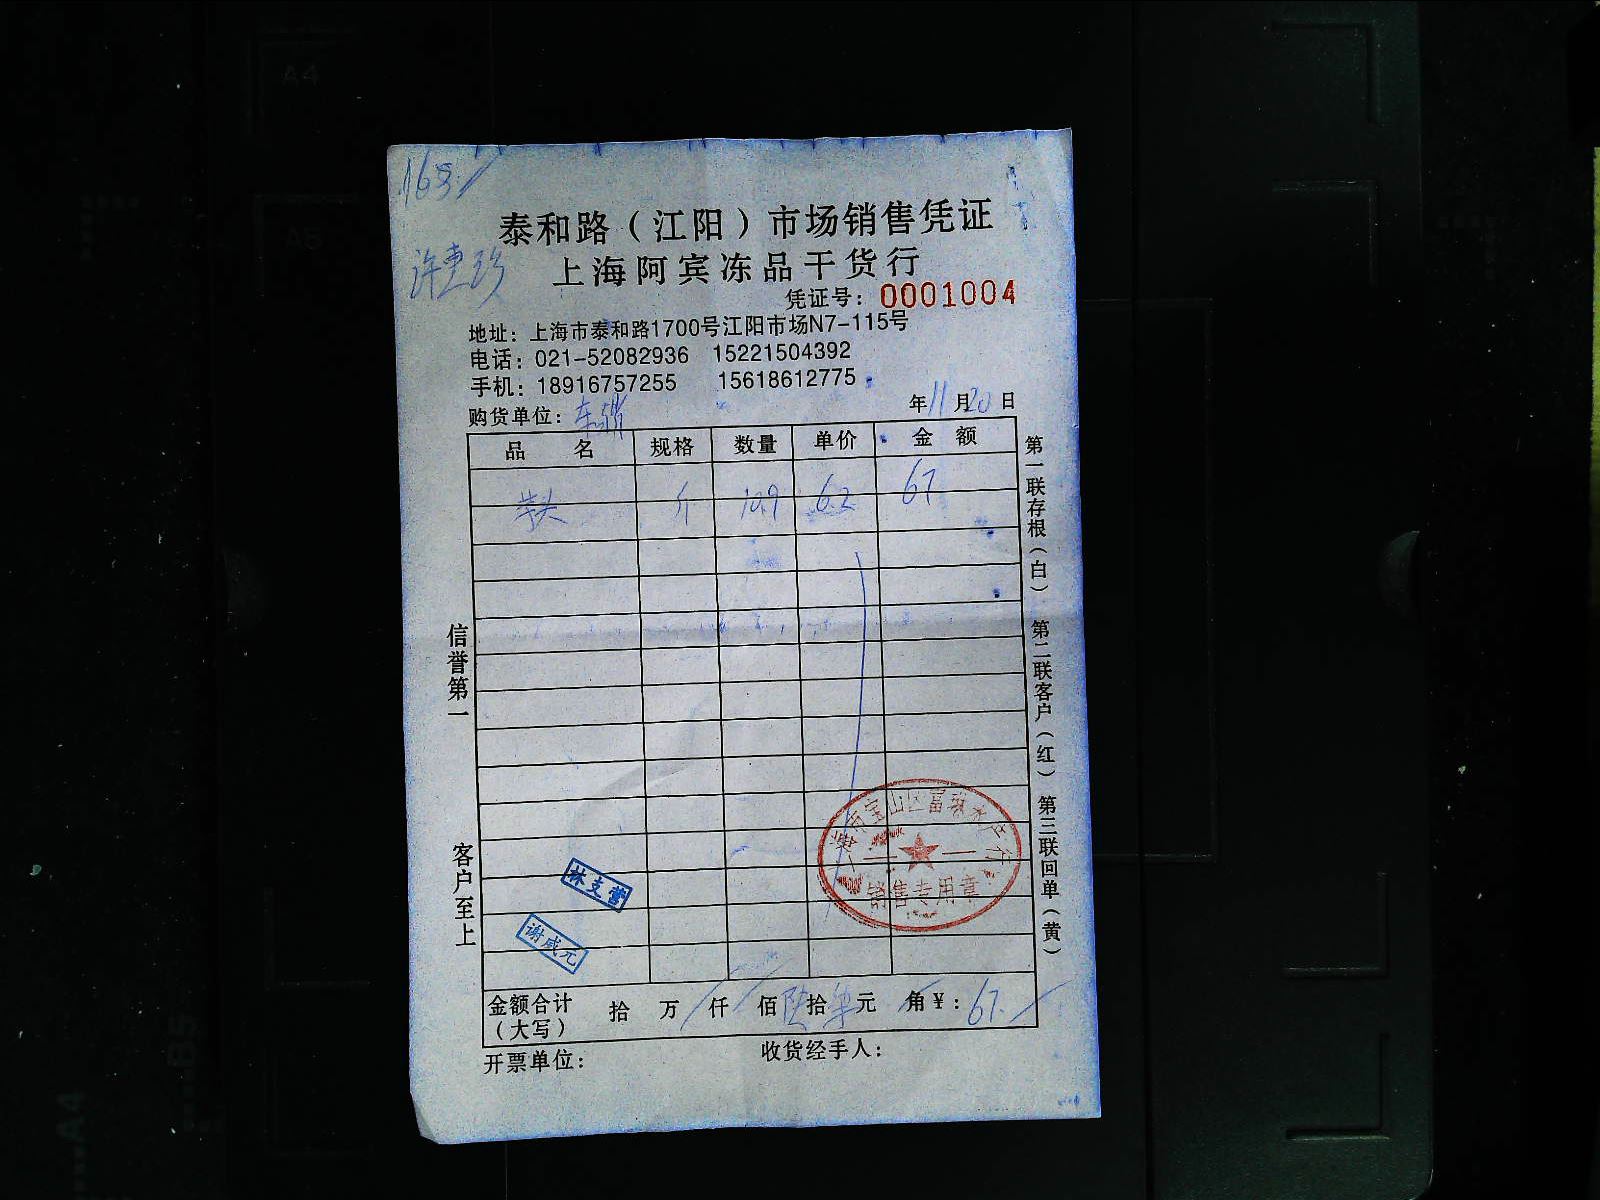 泰和路（江阳）市场销售凭证
上海阿宾冻品干货行
凭证号：0001004
地址：上海市泰和路1700号江阳市场N7-115号
电话：021-52082936 15221504392
手机：18916757255 15618612775
购货单位：
年11月20日
品 名 规格 数量 单价 金 额
芋头 斤 10.9 6.2 67
信誉第一
客户至上
第一联存根（白） 第二联客户（红） 第三联回单（黄）
林支营
谢成元
销售专用章
金额合计（大写） 拾 万 仟 佰 陆 拾 柒 元 角 ¥：67.
开票单位： 收货经手人：
A4
A5
B5
A4